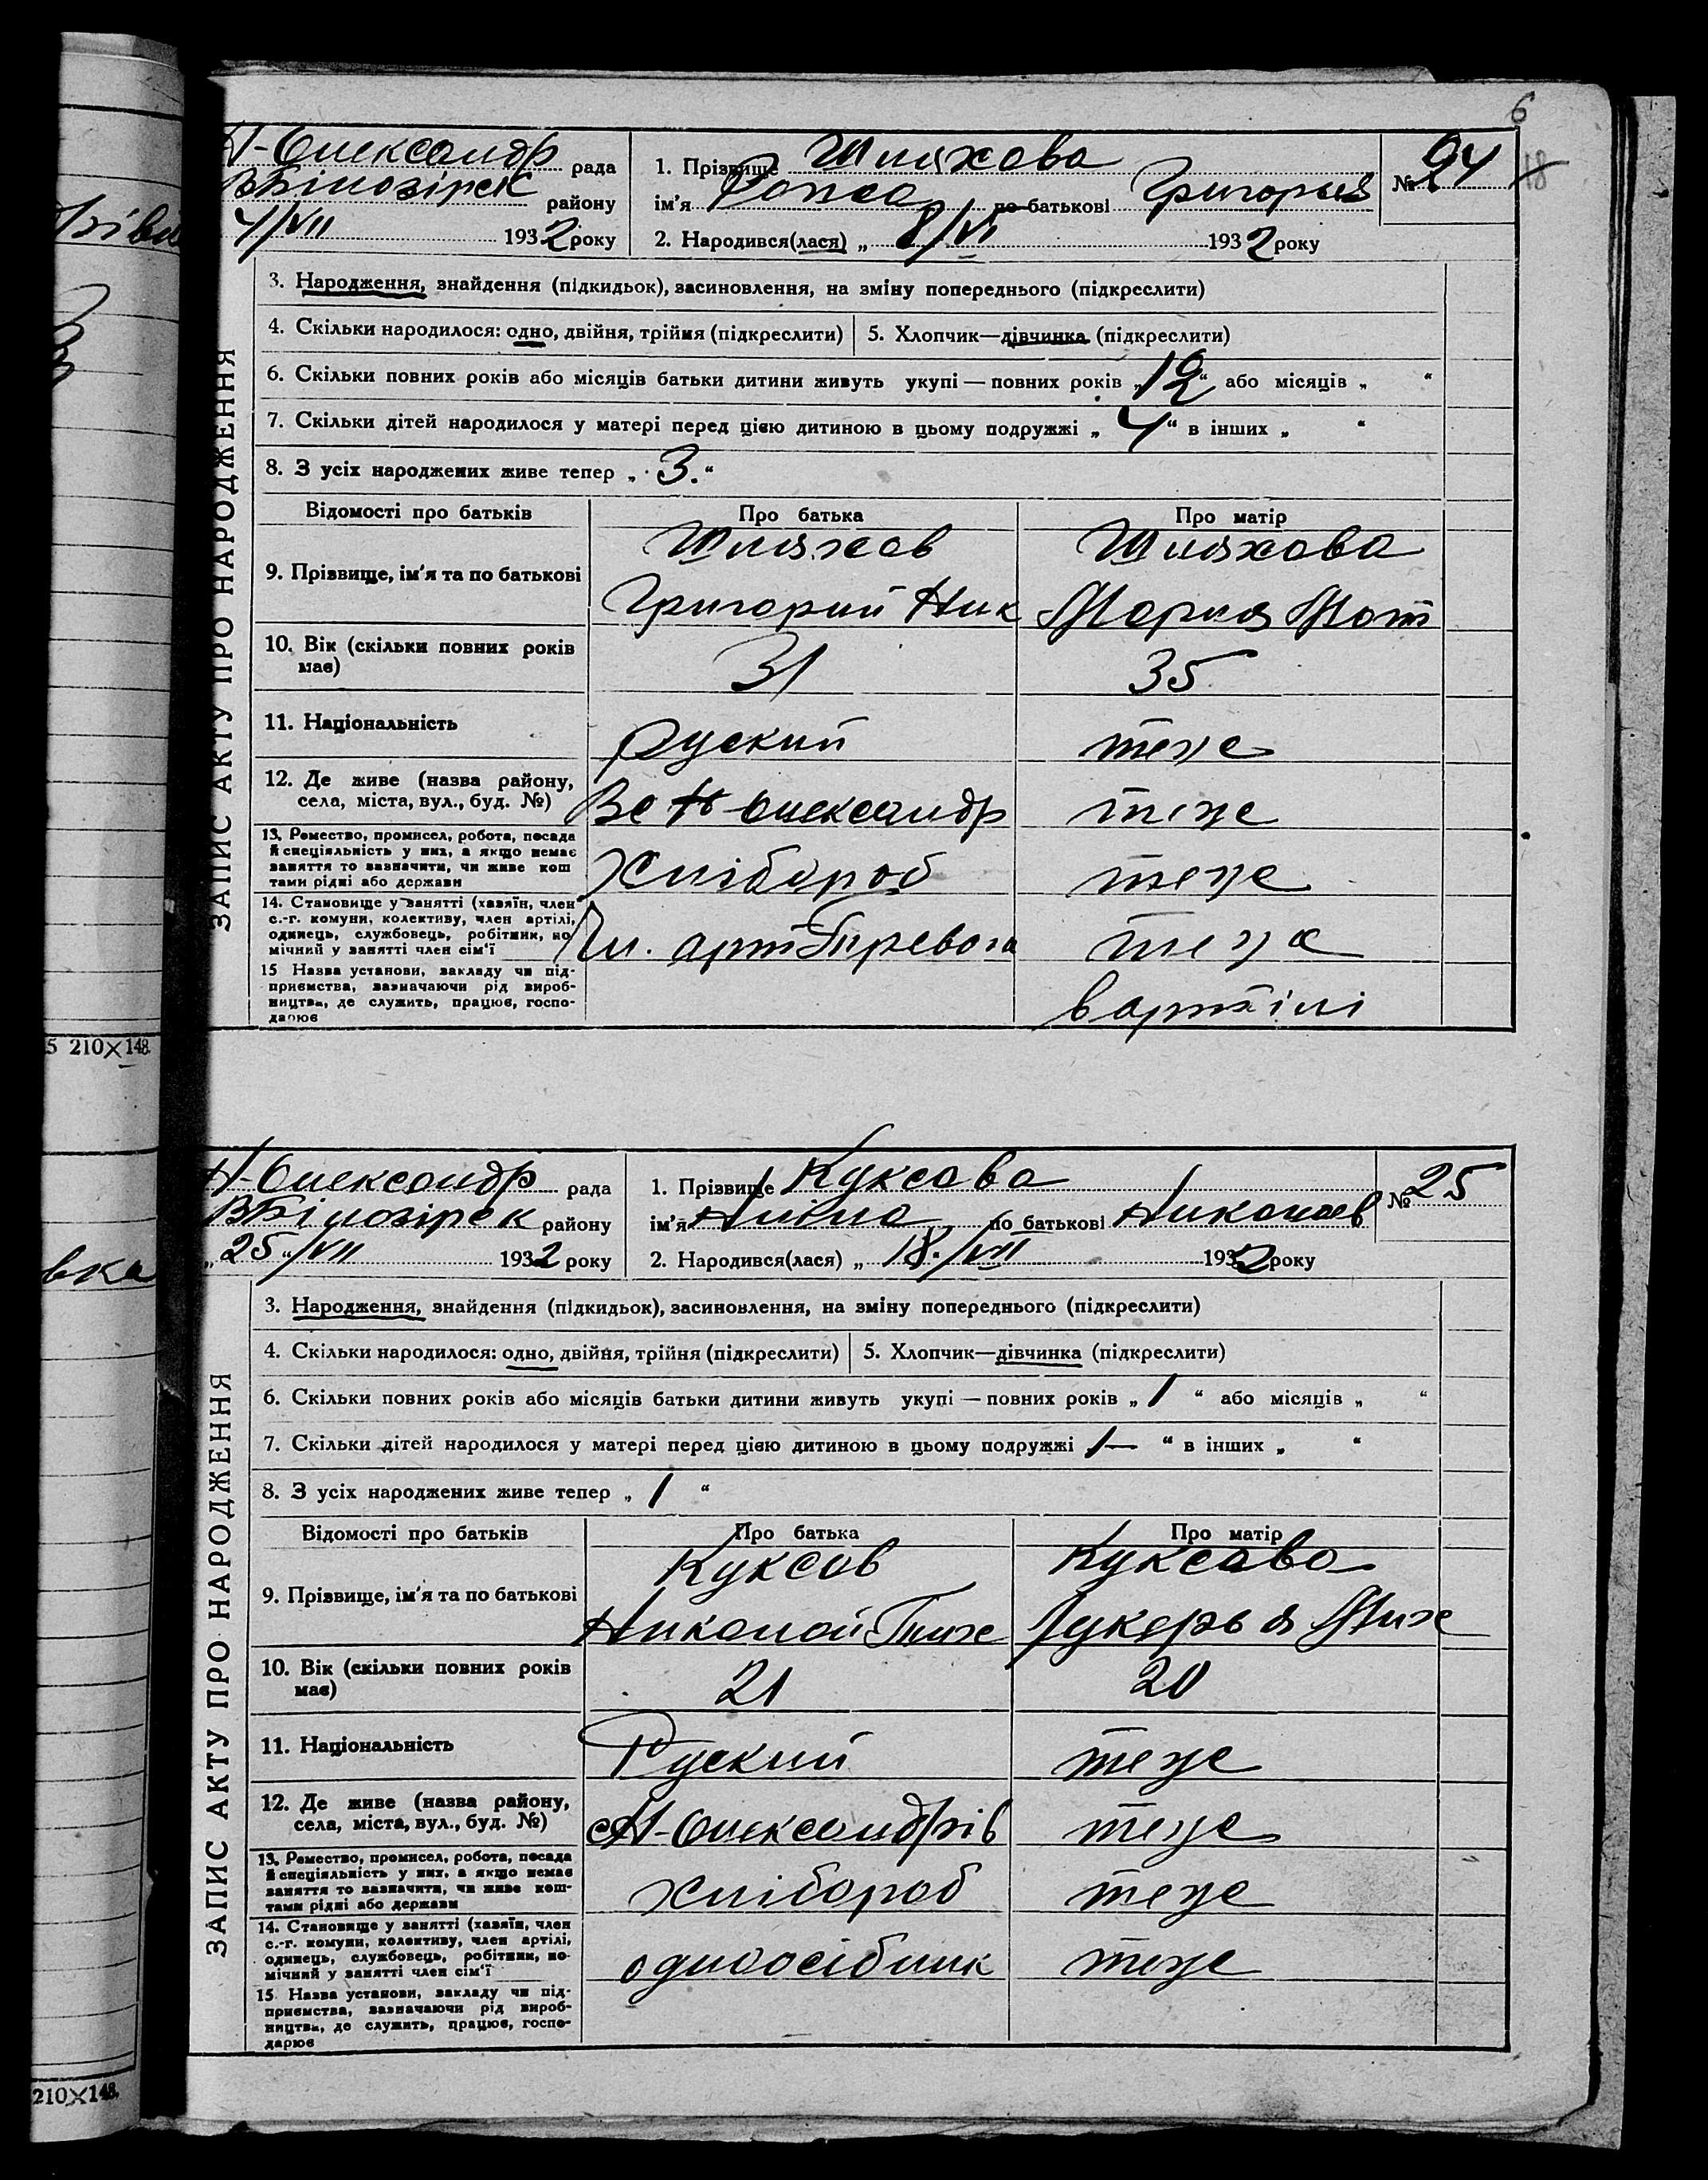 6
18
Н-Олександр рада
ВБілозірск району
4/VII 1932 року
1. Прізвище Шляхова
ім'я Раиса по батькові Григорьев
2. Народився(лася) „ 8/VI 1932 року
№ 24
ЗАПИС АКТУ ПРО НАРОДЖЕННЯ
3. Народження, знайдення (підкидьок), засиновлення, на зміну попереднього (підкреслити)
4. Скільки народилося: одно, двійня, трійня (підкреслити) 5. Хлопчик—дівчинка (підкреслити)
6. Скільки повних років або місяців батьки дитини живуть укупі — повних років „12“ або місяців „ “
7. Скільки дітей народилося у матері перед цією дитиною в цьому подружжі „ 4 “ в інших „ “
8. З усіх народжених живе тепер „ 3. “
Відомості про батьків Про батька Про матір
Шляхов Шляхова
9. Прізвище, ім'я та по батькові
Григорий Ник Мария Мат
10. Вік (скільки повних років
має) 31 35
11. Національність Руский теже
12. Де живе (назва району,
села, міста, вул., буд. №) Олександр теже
13. Ремество, промисел, робота, посада
й спеціяльність у них, а якщо немає
заняття то зазначити, чи живе кош
тами рідні або держави
Хлібороб теже
14. Становище у занятті (хазяїн, член
с.-г. комуни, колективу, член артілі,
одинець, службовець, робітник, по
мічний у занятті член сім'ї
Чл. арт теже
15 Назва установи, закладу чи під-
приємства, зазначаючи рід вироб-
ництва, де служить, працює, госпо-
дарює
в артілі
5 210×148.
Н-Олександр рада
ВБілозірск району
„ 25 “/VII 1932 року
1. Прізвище Куксова
ім'я Нина по батькові Николаев
2. Народився(лася) „ 18./VII 1932 року
№ 25
ЗАПИС АКТУ ПРО НАРОДЖЕННЯ
3. Народження, знайдення (підкидьок), засиновлення, на зміну попереднього (підкреслити)
4. Скільки народилося: одно, двійня, трійня (підкреслити) 5. Хлопчик—дівчинка (підкреслити)
6. Скільки повних років або місяців батьки дитини живуть укупі — повних років „ 1 “ або місяців „ “
7. Скільки дітей народилося у матері перед цією дитиною в цьому подружжі 1— “ в інших „ “
8. З усіх народжених живе тепер „ 1 “
Відомості про батьків Про батька Про матір
Куксов Куксова
9. Прізвище, ім'я та по батькові
Николай Тихо Лукерья Мих
10. Вік (скільки повних років
має) 21 20
11. Національність Руский теже
12. Де живе (назва району,
села, міста, вул., буд. №) сН-Олександрів теже
13. Ремество, промисел, робота, посада
й спеціяльність у них, а якщо немає
заняття то зазначити, чи живе кош-
тами рідні або держави
хлібороб теже
14. Становище у занятті (хазяїн, член
с.-г. комуни, колективу, член артілі,
одинець, службовець, робітник, по-
мічний у занятті член сім'ї
одноосібник теже
15 Назва установи, закладу чи під-
приємства, зазначаючи рід вироб-
ництва, де служить, працює, госпо-
дарює
210×148.